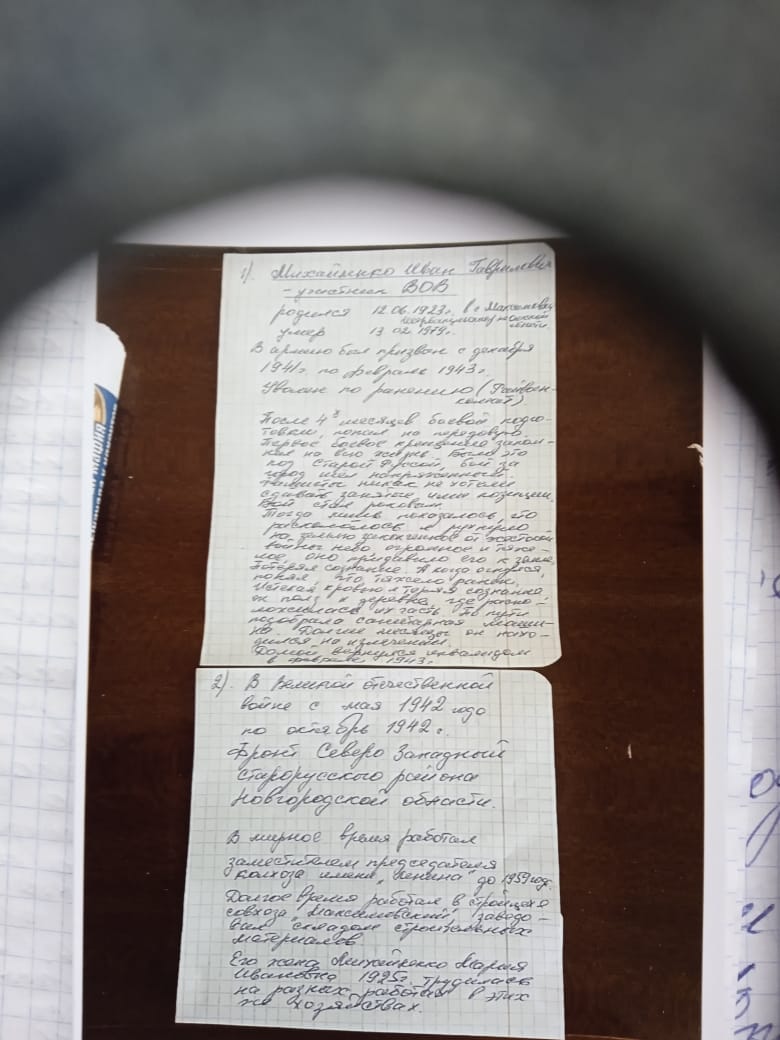 1). Михайленко Иван Гаврилович
- участник ВОВ
родился 12.06.1923г. в с Максимовка
умер 13 02. 1979г. области.
В армию был призван с декабря
1941г по февраль 1943г.
Уволен по ранению (Райвоен-
комат)
После 4х месяцев боевой подго-
товки, попал на передовую.
Первое боевое крещение запом-
нил на всю жизнь. Было это
под Старой Руссой, бой за
город шел напряженный.
Фашисты никак не хотели
сдавать занятые ими позиции.
Бой стал роковым.
Тогда лишь показалось, что
раскололось и рухнуло
на землю от жестокой
войны небо, огромное и тяже-
лое, оно придавило его к земле,
Потерял сознание. А когда очнулся,
понял, что тяжело ранен,
Истекая кровью и теряя сознание
он полз к деревне, где распо-
ложилась их часть. По пути
подобрала санитарная маши-
на. Долгие месяцы он нахо-
дился на излечении.
Домой вернулся инвалидом
в феврале 1943г
2). В Великой отечественной
войне с мая 1942 года
по октябрь 1942г.
Фронт Северо Западный
Старорусского района
Новгородской области.
В мирное время работал
заместителем председателя
колхоза имени "Ленина" до 1959 год.
Долгое время работал в стройцехе
совхоза "Максимовский", заведо-
вал складом строительных
материалов
Его жена Михайленко Мария
Ивановна 1925г. трудилась
на разных работах в этих
же хозяйствах.